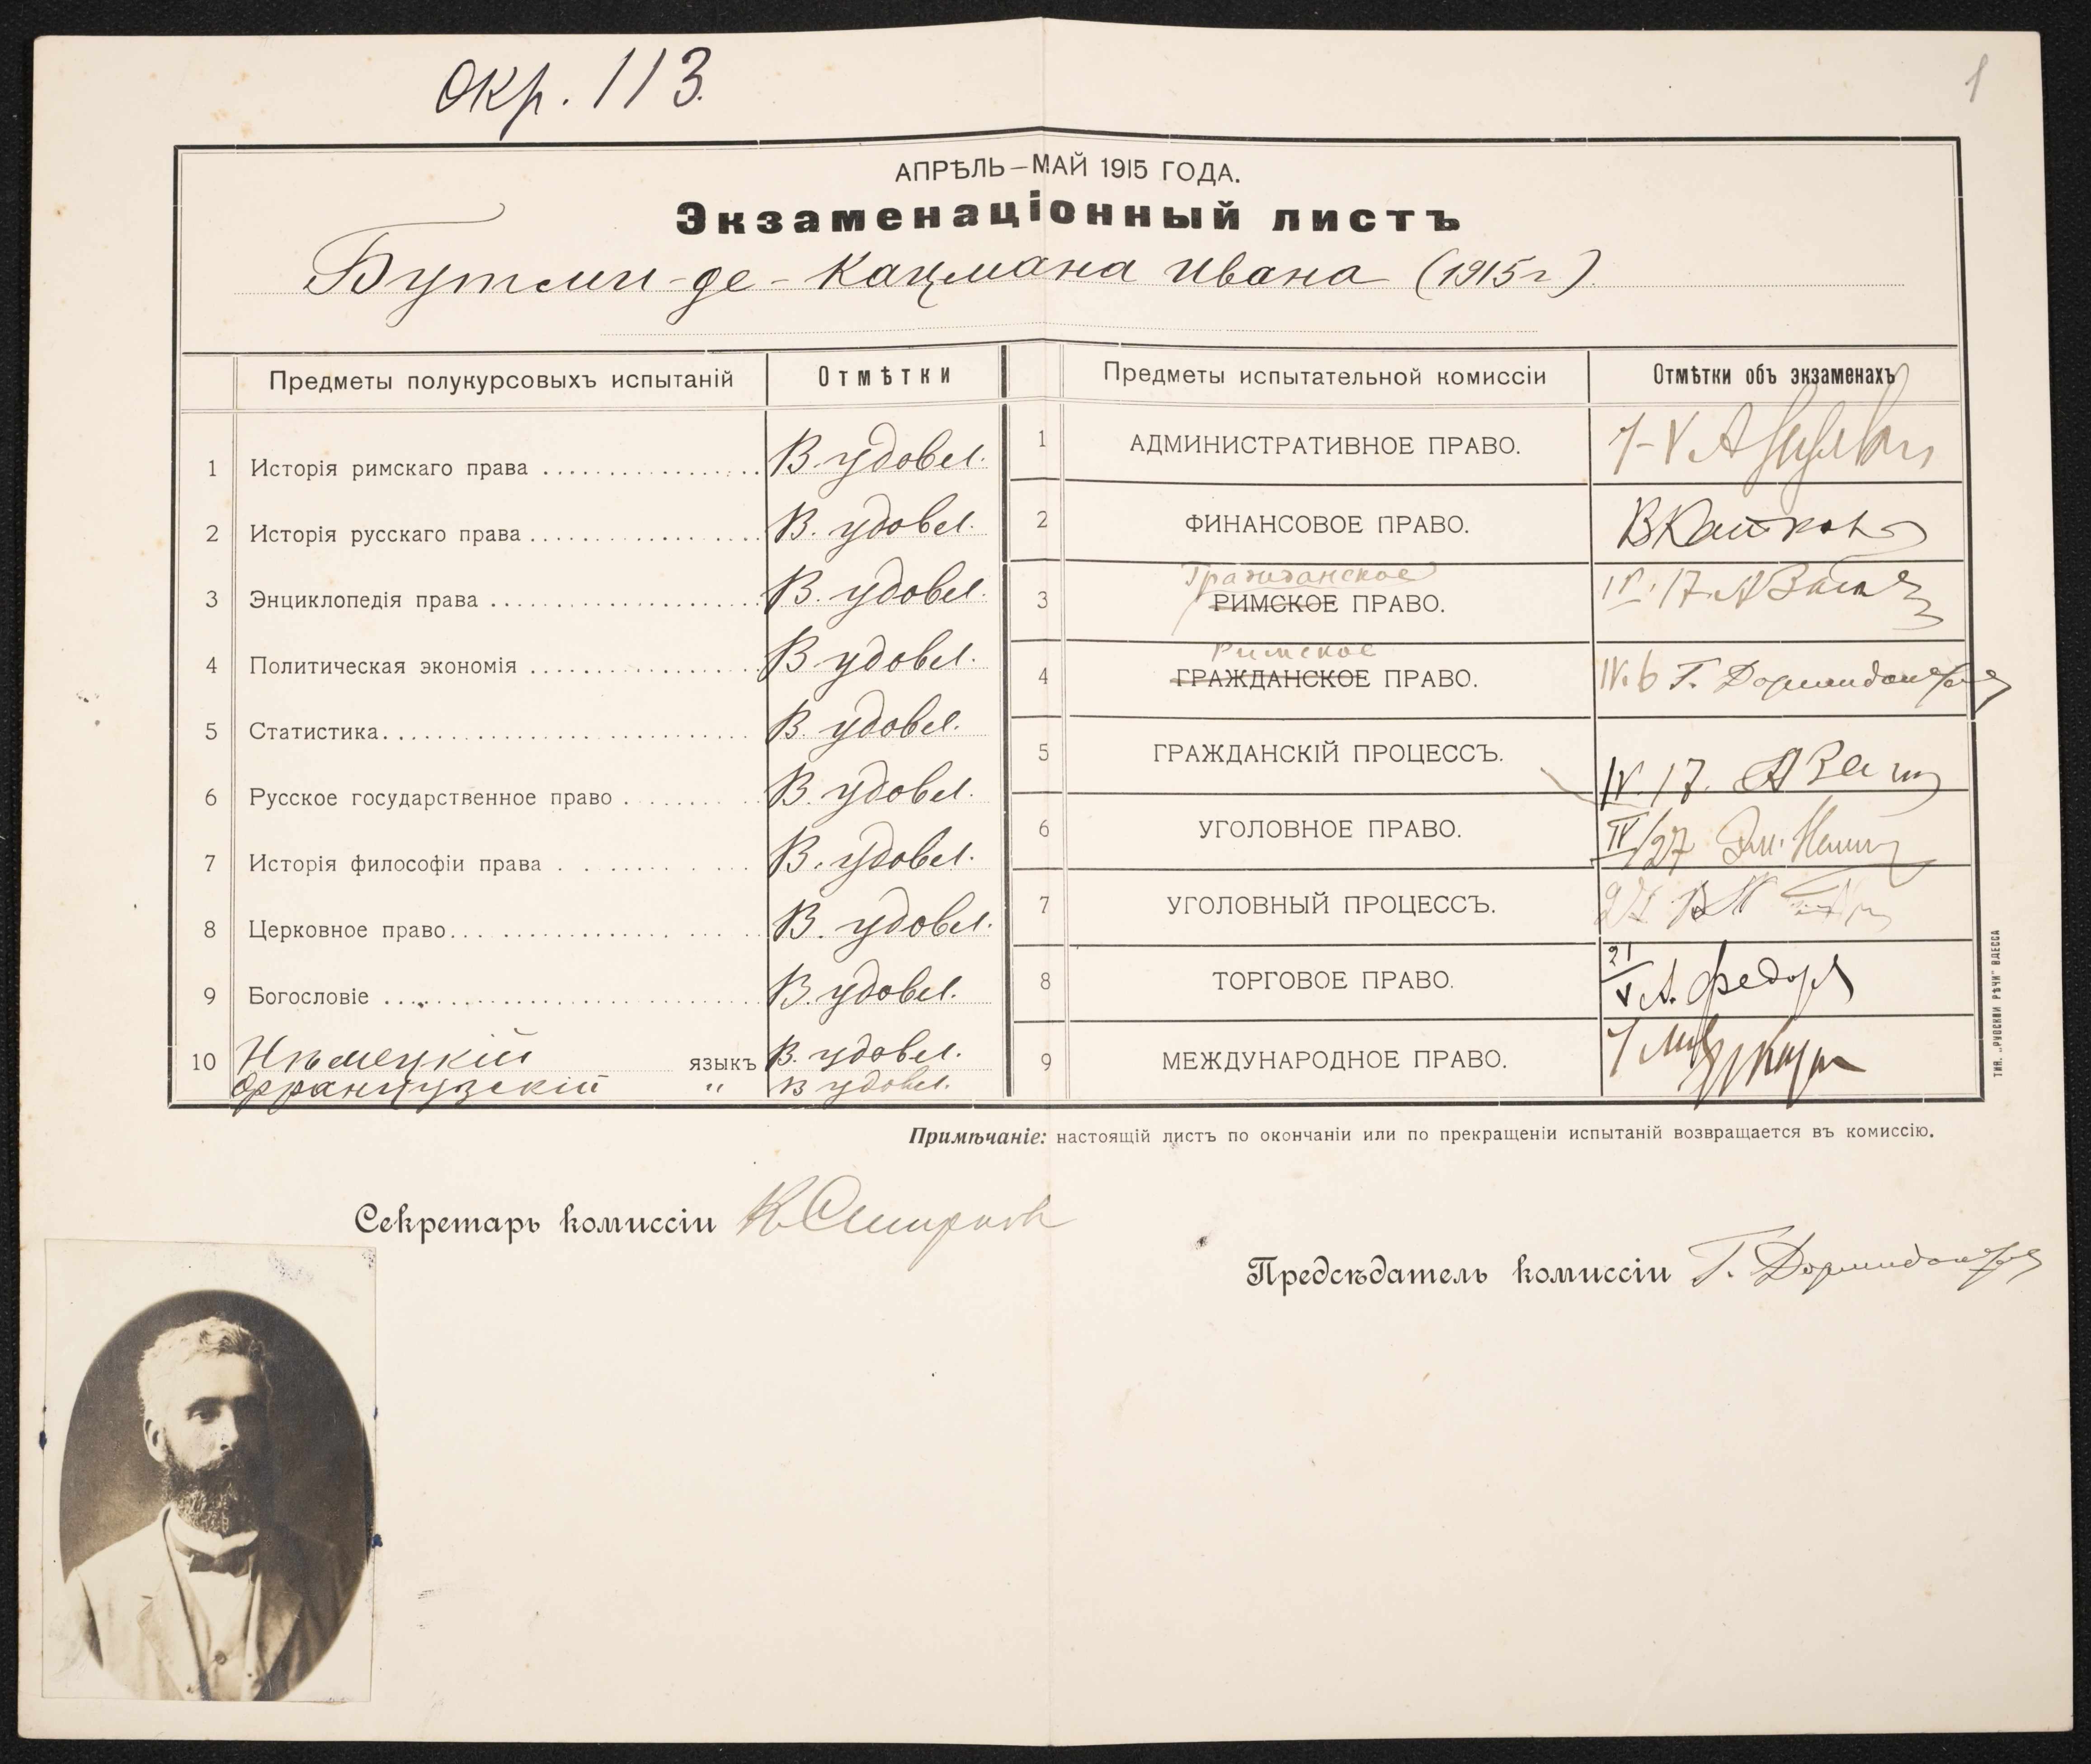 окр. 113.
1
АПРѢЛЬ—МАЙ 1915 ГОДА.
Экзаменаціонный листъ
Бутми-де-Кацмана Ивана (1915 г.)
Предметы полукурсовыхъ испытаній
Отмѣтки
1 Исторія римскаго права В. удовл.
2 Исторія русскаго права В. удовл.
3 Энциклопедія права В. удовл.
4 Политическая экономія В. удовл.
5 Статистика В. удовл.
6 Русское государственное право В. удовл.
7 Исторія философіи права В. удовл.
8 Церковное право В. удовл.
9 Богословіе В. удовл.
10 Нѣмецкій языкъ В. удовл.
Французскій " В удовл.
Предметы испытательной комиссіи
Отмѣтки объ экзаменахъ
1 АДМИНИСТРАТИВНОЕ ПРАВО.
2 ФИНАНСОВОЕ ПРАВО.
Гражданское
3 РИМСКОЕ ПРАВО. IV. 17.
Римское
4 ГРАЖДАНСКОЕ ПРАВО. IV. 6 Г. Дормидонтов
5 ГРАЖДАНСКІЙ ПРОЦЕССЪ. IV. 17.
6 УГОЛОВНОЕ ПРАВО. IV/27
7 УГОЛОВНЫЙ ПРОЦЕССЪ.
8 ТОРГОВОЕ ПРАВО. 21/V А. Федоров
9 МЕЖДУНАРОДНОЕ ПРАВО.
Примѣчаніе: настоящій листъ по окончаніи или по прекращеніи испытаній возвращается въ комиссію.
Секретарь комиссіи К Смирнов
Предсѣдатель комиссіи Г. Дормидонтов
ТИП. „РУССКОЙ РѢЧИ" ОДЕССА